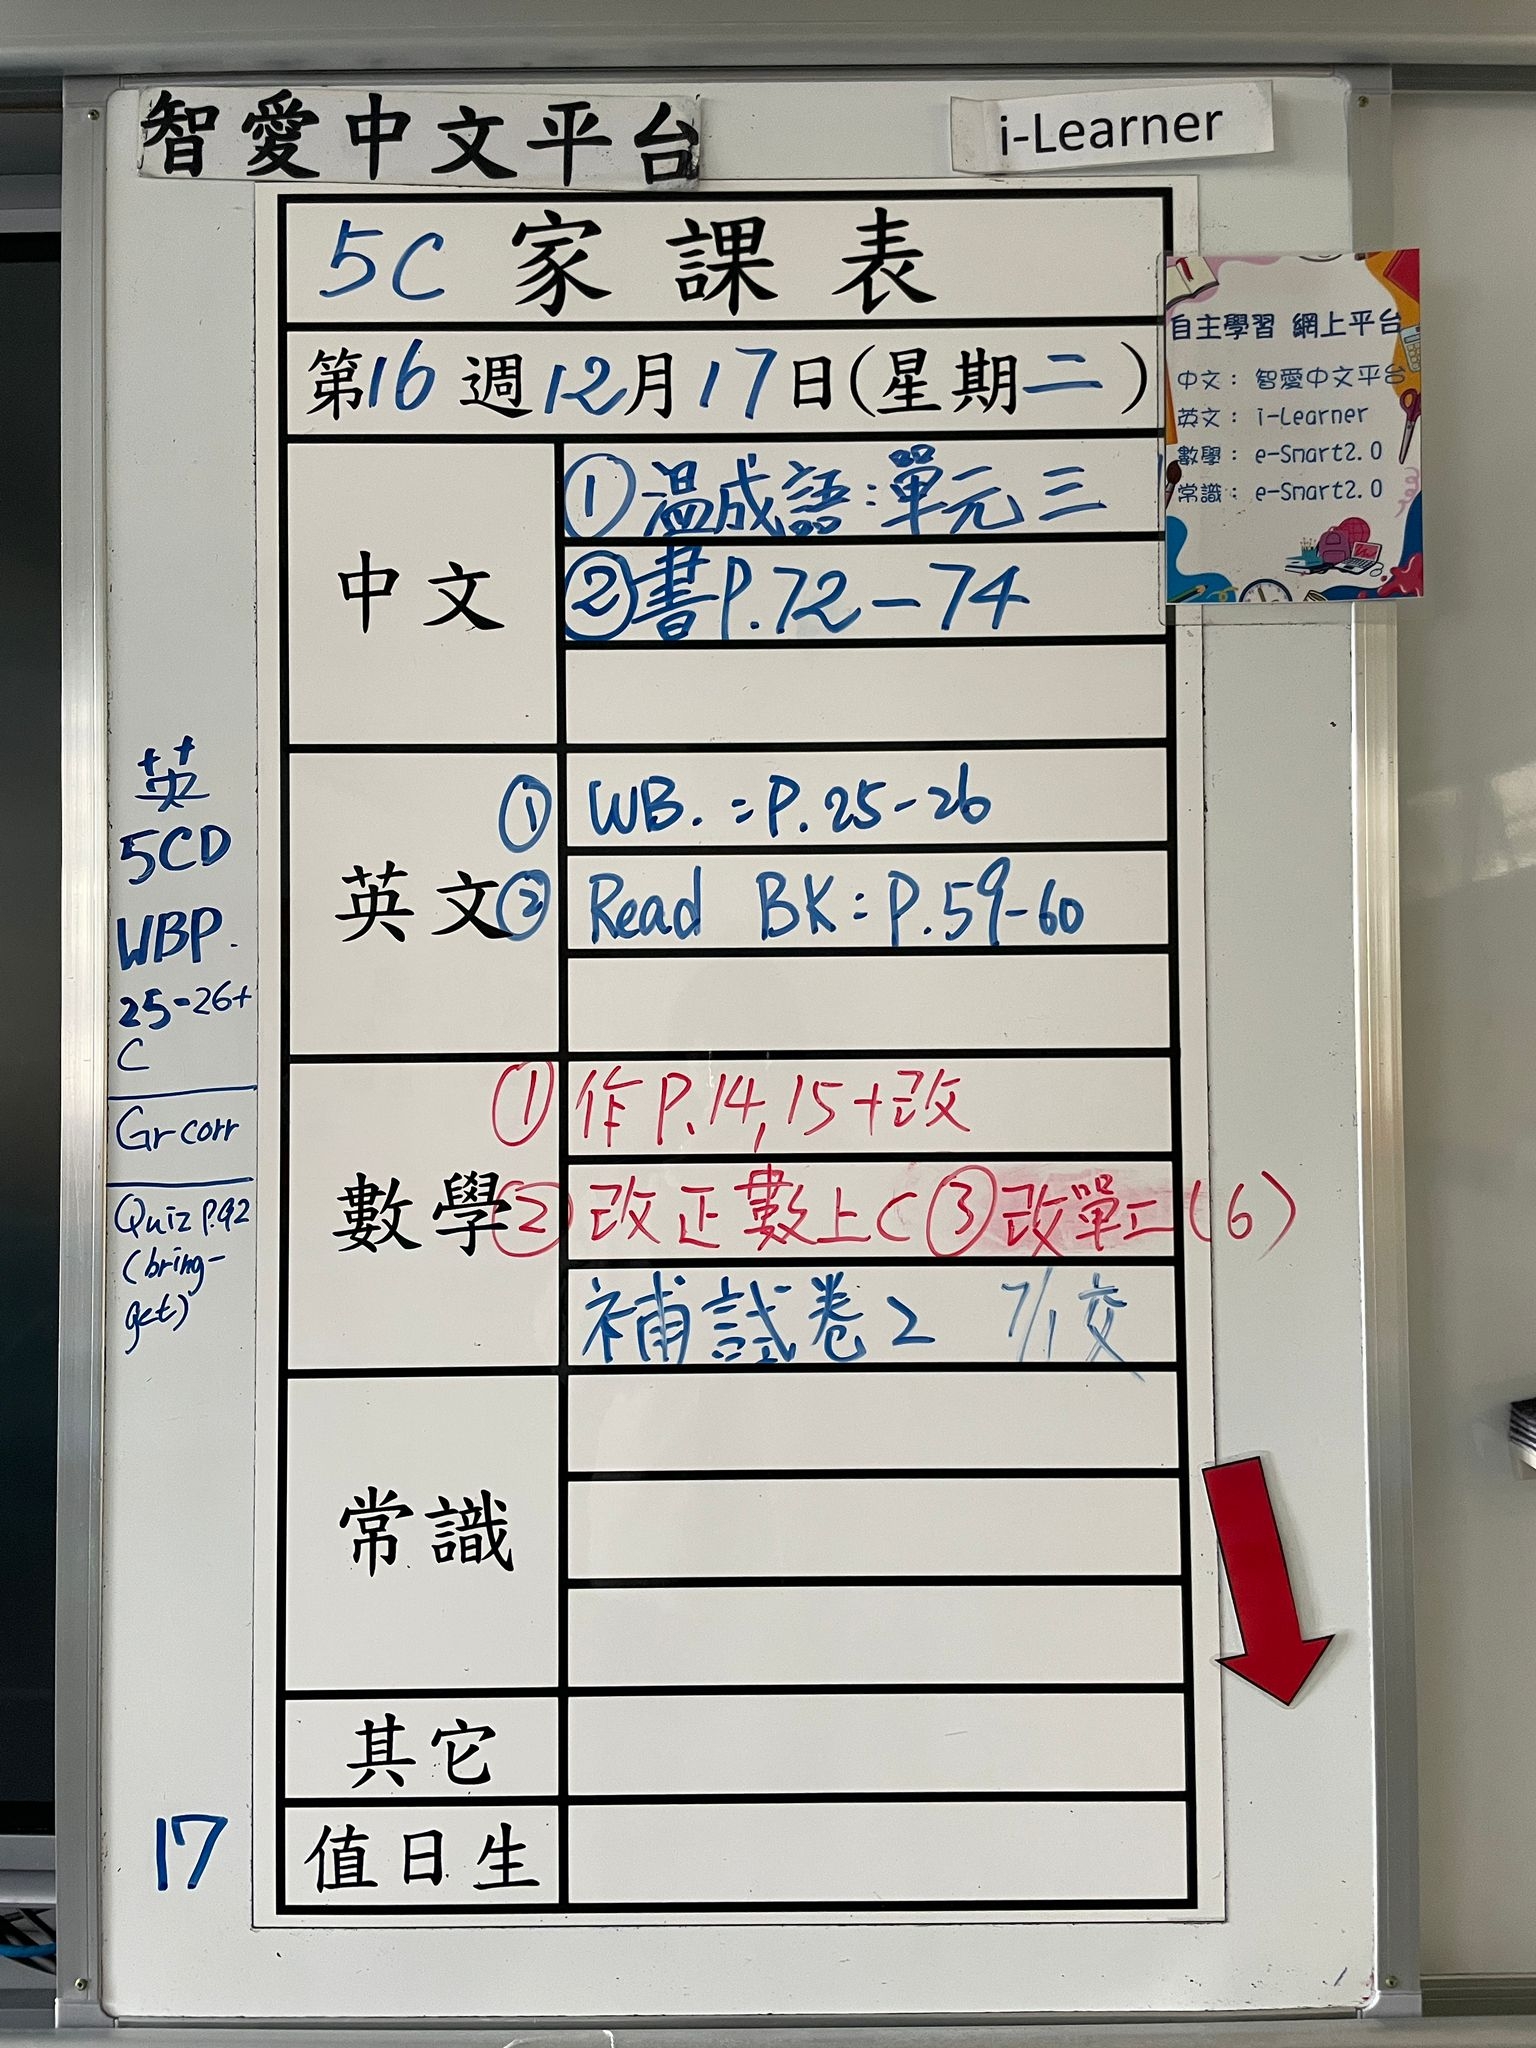 智愛中文平台
i-Learner
5C 家課表
第16週12月17日(星期二)
自主學習 網上平台
中文： 智愛中文平台
英文： i-Learner
數學： e-Smart2.0
常識： e-Smart2.0
中文
①溫成語:單元三
②書P.72-74
英文
① WB.=P.25-26
② Read BK:P.59-60
數學
①作P.14,15+改
②改正數上C ③改單二(6)
補試卷2 7/1交
常識
其它
值日生
英
5CD
WBP.
25-26+
C
Gr corr
Quiz P.92
(bring-
get)
17